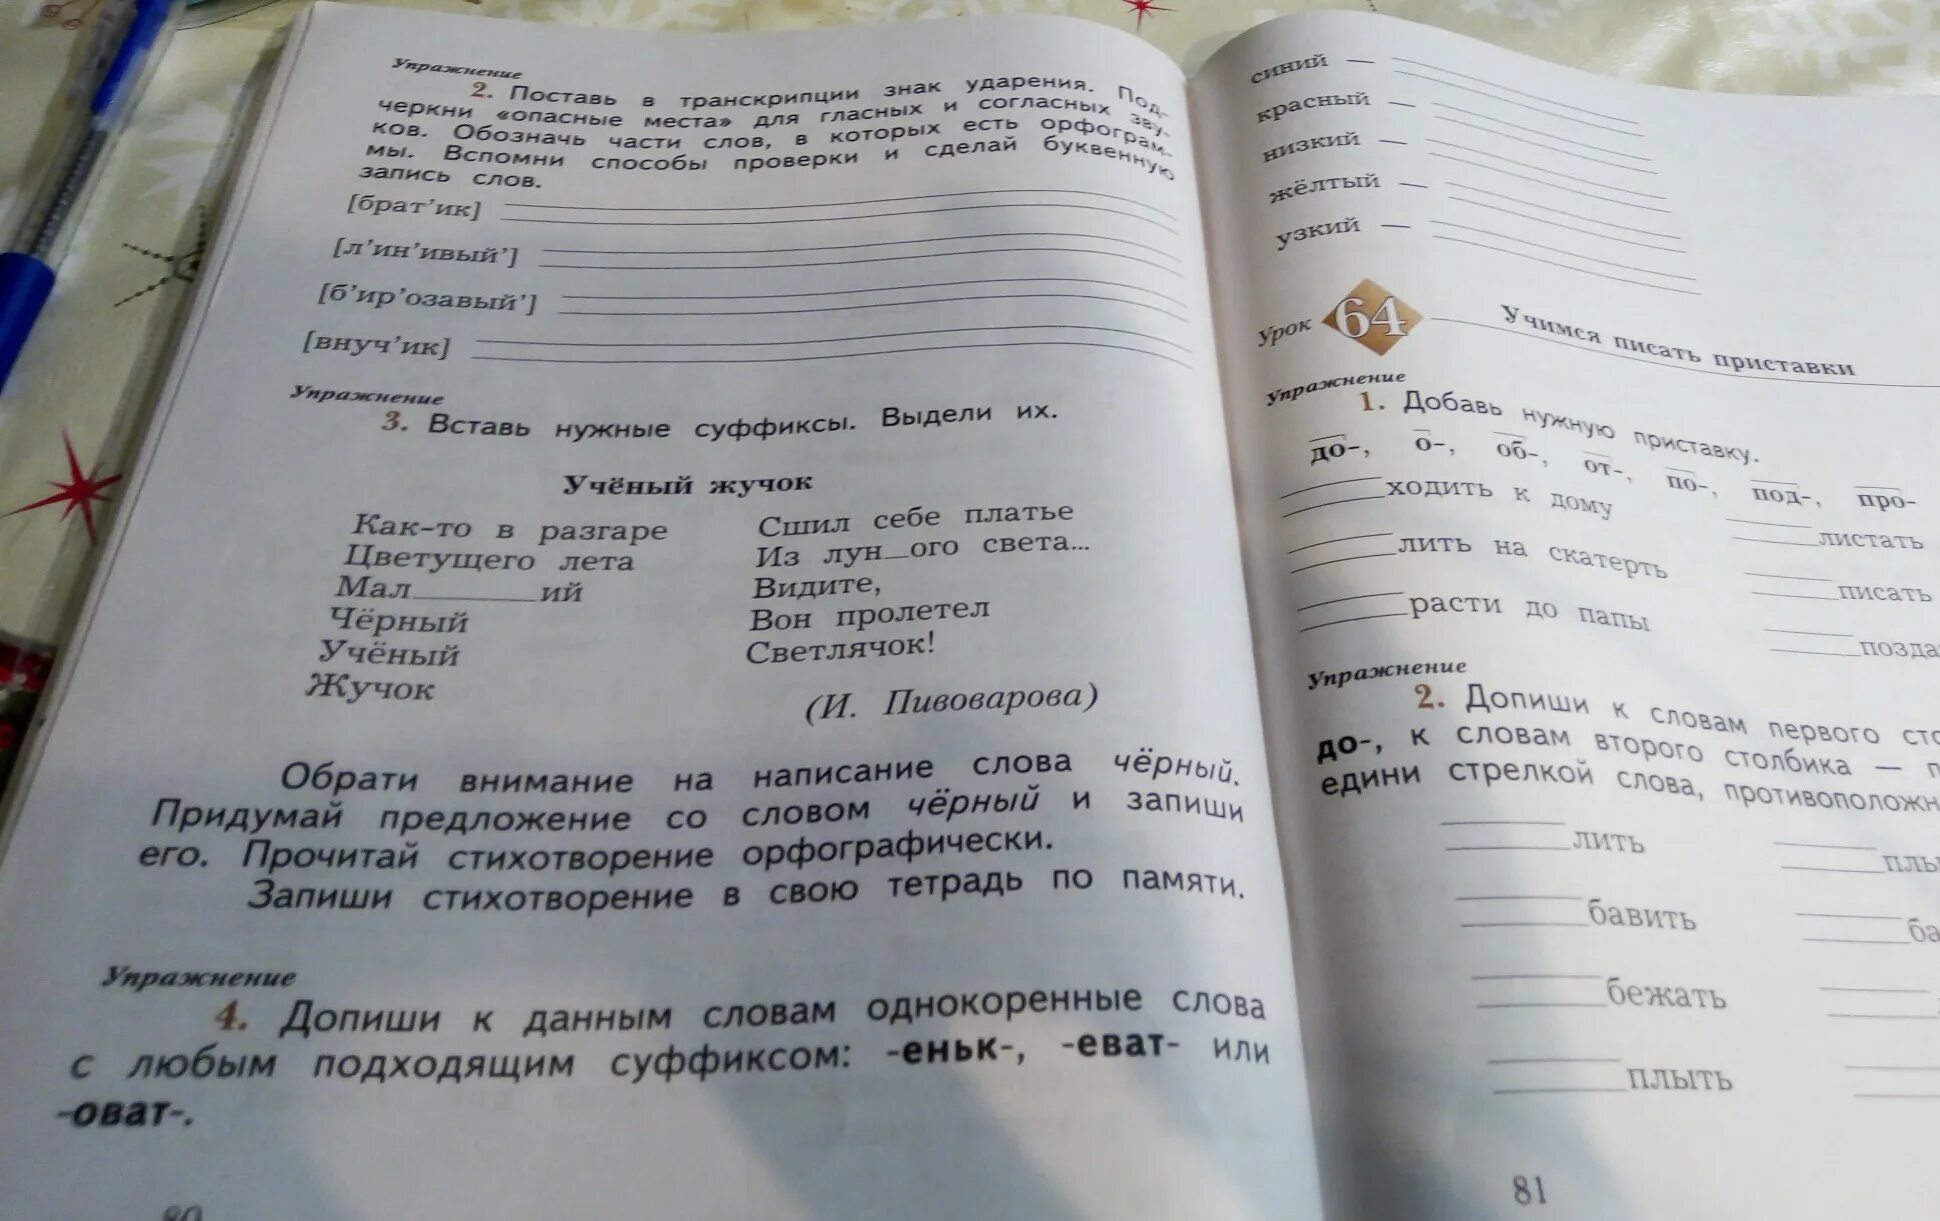 Упражнение
2. Поставь в транскрипции знак ударения. Под-
черкни «опасные места» для гласных и согласных зву-
ков. Обозначь части слов, в которых есть орфограм-
мы. Вспомни способы проверки и сделай буквенную
запись слов.
[брат'ик]
[л'ин'ивый']
[б'ир'озавый']
[внуч'ик]
Упражнение
3. Вставь нужные суффиксы. Выдели их.
Учёный жучок
Как-то в разгаре
Цветущего лета
Мал________ий
Чёрный
Учёный
Жучок
Сшил себе платье
Из лун__ого света...
Видите,
Вон пролетел
Светлячок!
(И. Пивоварова)
Обрати внимание на написание слова чёрный.
Придумай предложение со словом чёрный и запиши
его. Прочитай стихотворение орфографически.
Запиши стихотворение в свою тетрадь по памяти.
Упражнение
4. Допиши к данным словам однокоренные слова
с любым подходящим суффиксом: -еньк-, -еват- или
-оват-.
80
синий —
красный —
низкий —
жёлтый —
узкий —
Урок 64 Учимся писать приставки
Упражнение
1. Добавь нужную приставку.
до-, о-, об-, от-, по-, под-, про-
______ходить к дому ______листать
______лить на скатерть ______писать
______расти до папы ______позда
Упражнение
2. Допиши к словам первого сто
до-, к словам второго столбика — п
едини стрелкой слова, противоположн
______лить ______плы
______бавить ______ба
______бежать
______плыть
81